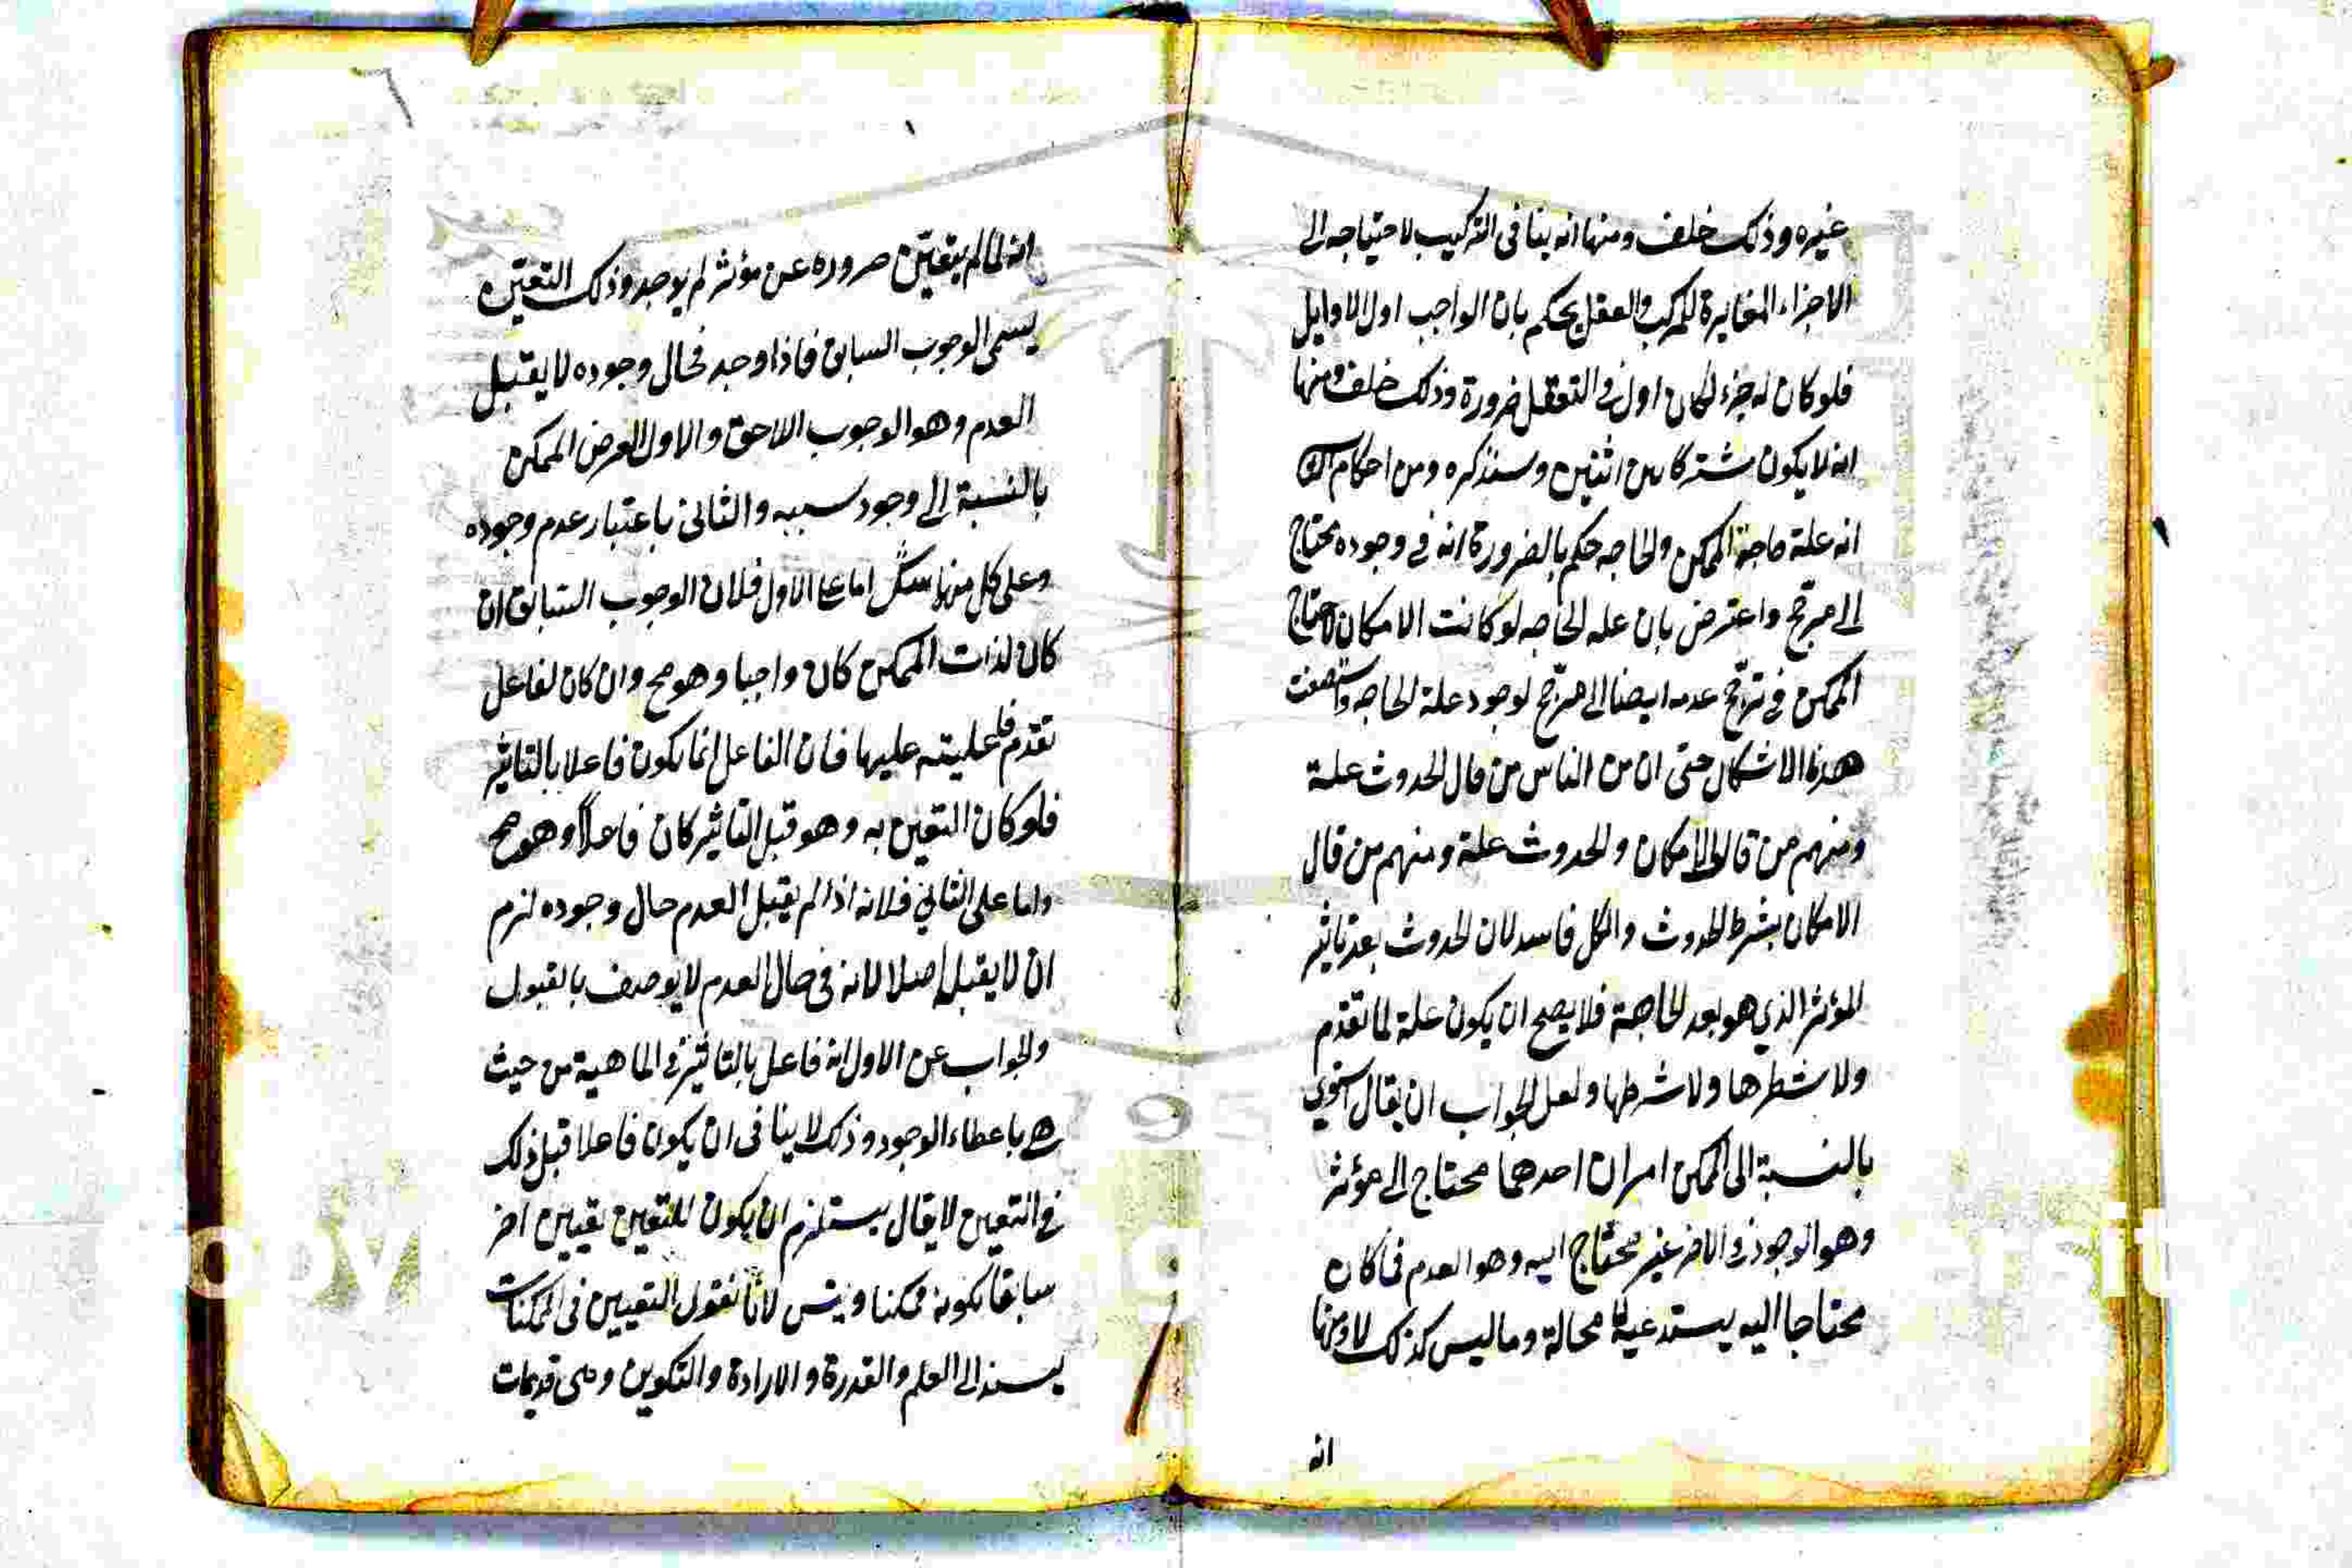 غيره وذلك خلف ومنها انه ينافى التركيب لاحتياجه الى
الاجزاء المغايرة للمركب والعقل يحكم بان الواجب اول الاوايل
فلو كان له جزء لكان اول فى التعقل ضرورة وذلك خلف ومنها
انه لا يكون مشتركا بين اثنين وسنذكره ومن احكام
انه علة حاجة الممكن والحاجه حكم بالضرورة انه فى وجوده محتاج
الى مرجح واعترض بان عله الحاجه لو كانت الامكان لاحتاج
الممكن فى ترجح عدمه ايضا الى مرجح لوجود علة الحاجه
هذا الاشكال حتى ان من الناس من قال الحدوث علة
ومنهم من قال الامكان والحدوث علة ومنهم من قال
الامكان بشرط الحدوث والكل فاسد لان الحدوث بعد تاثير
المؤثر الذي هو بعد الحاجة فلا يصح ان يكون علة لما تقدم
ولا شطرها ولا شرطها ولعل الجواب ان يقال
بالنسبة الى الممكن امران احدهما محتاج الى مؤثر
وهو الوجود والاخر غير محتاج اليه وهو العدم فما كان
محتاجا اليه يستدعيه لا محالة وما ليس كذلك لا ومنها
انه
انه لما لم يتعين صروره عن مؤثر لم يوجد وذلك التعين
يسمى الوجوب السابق فاذا وجد فحال وجوده لا يقبل
العدم وهو الوجوب اللاحق والاول لعرض الممكن
بالنسبة الى وجود سببه والثانى باعتبار عدم وجوده
وعلى كل منهما شك اما على الاول فلان الوجوب السابق ان
كان لذات الممكن كان واجبا وهو مح وان كان لفاعل
تقدم فاعليته عليها فان الفاعل انما يكون فاعلا بالتاثير
فلو كان التعين به وهو قبل التاثير كان فاعلا وهو مح
واما على الثاني فلانه اذا لم يقبل العدم حال وجوده لزم
ان لا يقبل اصلا لانه فى حال العدم لا يوصف بالقبول
والجواب عن الاول انه فاعل بالتاثير فى الماهية من حيث
هى باعطاء الوجود وذلك لا ينافى ان يكون فاعلا قبل ذلك
فى التعين لا يقال يستلزم ان يكون للتعين تعيين اخر
سابقا لكونه ممكنا ويتس لانا نقول التعيين فى الممكنات
يسند الى العلم والقدرة والارادة والتكوين وهى قديمات